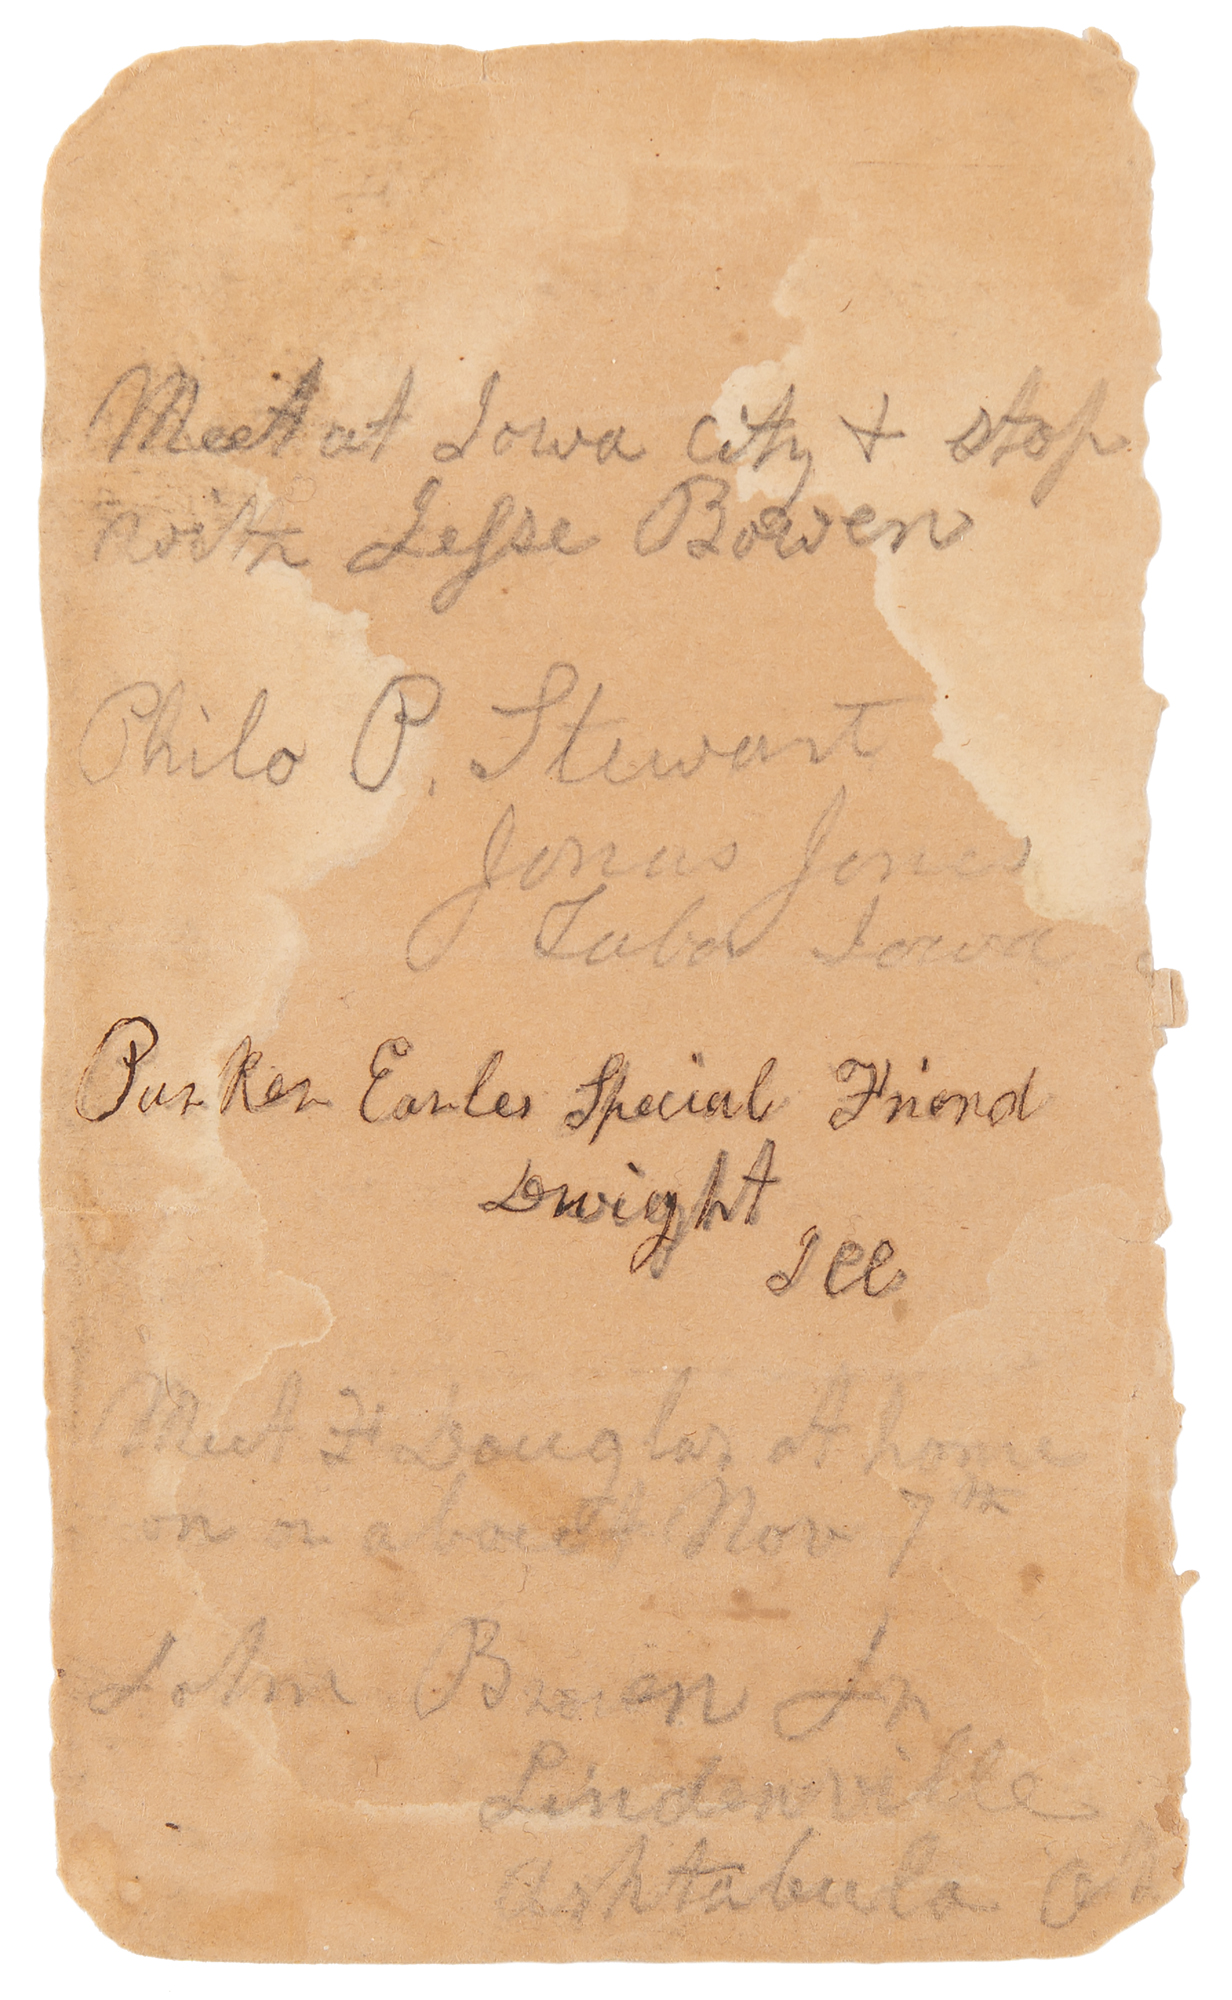 Meet at Iowa city & stop
with Jesse Bowen
Philo P. Stewart
Jonas Jones
Tabor Iowa
Parker Earles Special Friend
Dwight
Ill
Meet F Douglas at home
on or about Nov 7th
John Brown Jr
Lindenville
Ashtabula Oh